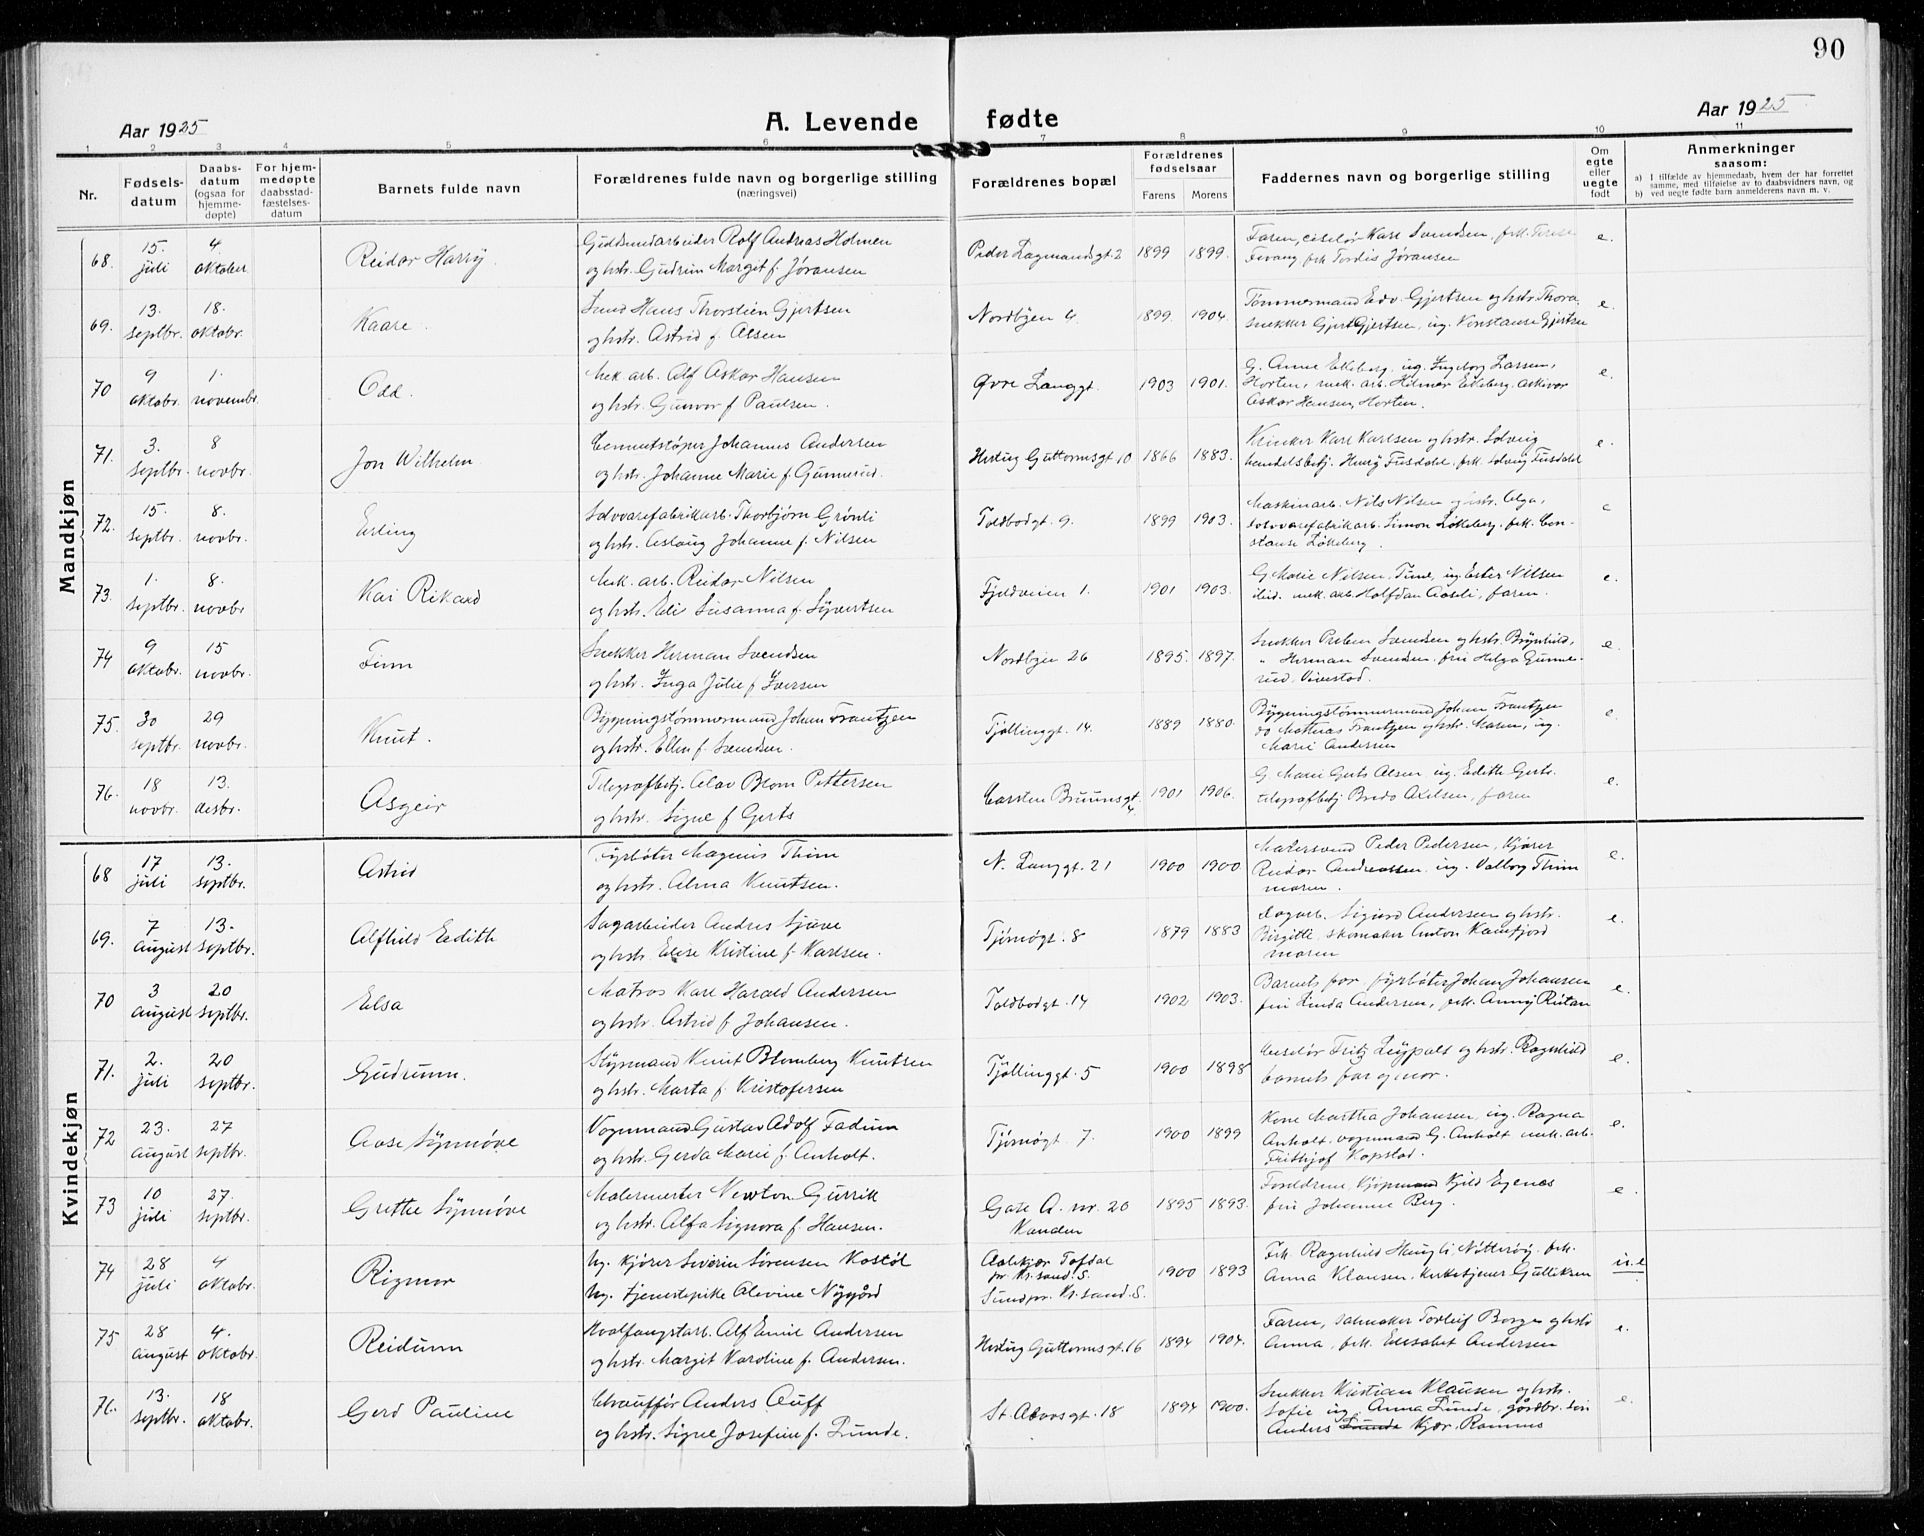 90
Aar 1925
A. Levende fødte
Aar 1925
1 2 3 4 5 6 7 8 9 10 11
Nr.
Fødsels-
datum
Daabs-
datum
(ogsaa for
hjemme-
døpte)
For hjem-
medøpte
daabsstad-
fæstelses-
datum
Barnets fulde navn
Forældrenes fulde navn og borgerlige stilling
(næringsvei)
Forældrenes bopæl
Forældrenes
fødselsaar
Farens Morens
Faddernes navn og borgerlige stilling
Om
egte
eller
uegte
født
Anmerkninger
saasom:
a) I tilfælde av hjemmedaab, hvem der har forrettet
samme, med tilføielse av to daabsvidners navn, og
b) ved uegte fødte barn anmelderens navn m. v.
Mandkjøn
68. 15. juli 4. oktober Reidar Harry
Guldsmedarbeider Rolf Andreas Holmen
og hstr. Gudrun Margit f. Jøransen
Peder Lagmandsgt. 2 1899 1899.
Faren, ciselør Karl Svendsen, frk. Terese
Fevang frk Tordis Jøransen
e.
69. 13. septbr. 18. oktobr. Kaare.
Hans Thorstein Gjertsen
og hstr. Astrid f. Olsen
Nordbyen 4. 1899. 1904.
Tømmermand Edv. Gjertsen og hstr Thora,
snekker Gjert Gjertsen, ug. Konstanse Gjertsen
e.
70 9 oktobr. 1. novembr. Odd.
Mek. arb. Alf Oskar Hansen
og hstr. Gunvor f Paulsen.
Øvre Langgt. 1903 1901.
G. Anne Ekeberg, ug. Ingeborg Larsen,
Horten, mek. arb. Hilmar Ekeberg,
Oskar Hansen, Horten.
e.
71. 3. septbr. 8 novbr. Jon Wilhelm
Cementstøper Johannes Andersen
og hstr. Johanne Marie f. Gunnerud.
Hertug Guttormsgt 10 1866 1883.
Karl Karlsen og hstr. Solveig
handelsbetj. Henry Fusdahl, frk. Solveig Fusdahl
e.
72. 15. septbr. 8. novbr. Erling
Sølvvarefabrikarb. Thorbjørn Grønli
og hstr. Aslaug Johanne f. Nilsen
Toldbodgt. 9. 1899 1903.
Maskinarb. Nils Nilsen og hstr. Olga,
sølvvarefabrikarb. Simon Løkeberg, frk. Con-
stanse Løkeberg.
e
73. 1. septbr. 8. novbr Kai Rikard
Mek. arb. Reidar Nilsen
og hstr. Elé Susanna f. Syvertsen
Fjeldveien 1. 1901 1903.
G. Marie Nilsen, Tune, ug. Ester Nilsen
ibid. mek. arb. Halfdan Aaseli, faren.
e.
74 9 oktobr. 15 novbr. Finn
Snekker Herman Svendsen
og hstr. Inga Julie f Iversen
Nordbyen 26 1895. 1897.
Snekker Preben Svendsen og hstr. Brynhild,
" Herman Svendsen, fru Helga Gunne-
rud, Vivestad.
e.
75. 30 septbr. 29 novbr. Knut.
Bygningstømmermand Johan Frantzen
og hstr. Ellen f. Svendsen.
Tjøllinggt. 14. 1889 1880.
Bygningstømmermand Johan Frantzen
do Mathias Frantzen og hstr. Maren, ug.
Marie Andersen
e.
76. 18 novbr. 13. desbr. Asgeir
Telegrafbetj. Olav Blom Pettersen
og hstr. Signe f Gerts
Carsten Bruunsgt. 4 1901 1906.
G. Marie Gerts Olsen, ug. Edith Gerts.
telegrafbetj Bredo Axelsen, faren
e.
Kvindekjøn
68 17 juli 13. septbr. Astrid
Fyrbøter Magnus Thim
og hstr. Alma Knutsen.
N. Langgt. 21 1900 1900.
Malersvend Peder Pedersen, kjører
Reidar Andreassen, ug. Valborg Thim
moren.
e.
69. 7 august 13. septbr. Alfhild Eedith
Sagarbeider Andres Sjave
og hstr. Elise Kristine f. Karlsen.
Tjømøgt. 8 1879 1883
Dagarb. Sigurd Andersen og hstr.
Birgitte, skomaker Anton Kamfjord
moren
e.
70 3 august 20 septbr. Elsa
Matros Karl Harald Andersen
og hstr. Astrid f Johansen.
Toldbodgt. 14 1902 1903.
Barnets far, fyrbøter Johan Johansen
fru Linda Andersen, frk. Anny Ristan
e.
71. 2. juli 20 septbr. Gudrunn.
Styrmand Knut Blomberg Knutsen
og hstr. Marta f. Kristofersen
Tjøllinggt. 5 1900 1898
Ciselør Fritz Leypolt og hstr. Ragnhild
barnets far og mor.
e.
72 23. august 27 septbr. Aase Synnøve
Vognmand Gustav Adolf Fadum
og hstr. Gerda Marie f. Anholt.
Tjømøgt. 7. 1900 1899
Kone Martha Johansen, ug. Ragna
Anholt, vognmand G. Anholt mek. arb.
Frithjof Kopstad.
e.
73 10 juli 27. septbr. Grethe Synnøve
Malermester Newton Gurrik
og hstr. Alfa Signora f. Hansen.
Gate A. nr. 20
Kanalen
1895 1893.
Foreldrene, kjøpmand Kjeld Egenes
fru Johanne Berg.
e.
74 28 juli 4 oktobr. Rigmor
Ug. kjører Severin Sørensen Kostøl
Ug. tjenestepike Alevine Nygård
Aalekjær Tofdal
pr. Kr.sand. S.
Sund pr. Kr.sand S.
1900 1893
Frk. Ragnhild Haugli, Nøtterøy, frk.
Anna Klausen, kirketjener Gulliksen
u.e.
75 28 august 4. oktobr. Reidunn
Hvalfangstarb. Alf Emil Andersen
og hstr. Margit Karoline f. Andersen.
Hertug Guttormsgt. 16 1894 1904.
Faren, Torleif Borgen og hstr
Anna, frk. Elisabet Andersen
e.
76. 13. septbr. 18 oktobr. Gerd Pauline
Chauffør Anders Auff
og hstr. Signe Josefine f. Lunde.
St. Olavsgt. 18 1894 1900.
Snekker Kristian Klausen og hstr.
Sofie ug. Anna Lunde, gårdbr. søn
Anders Lunde Kjær, Ramnes
e.